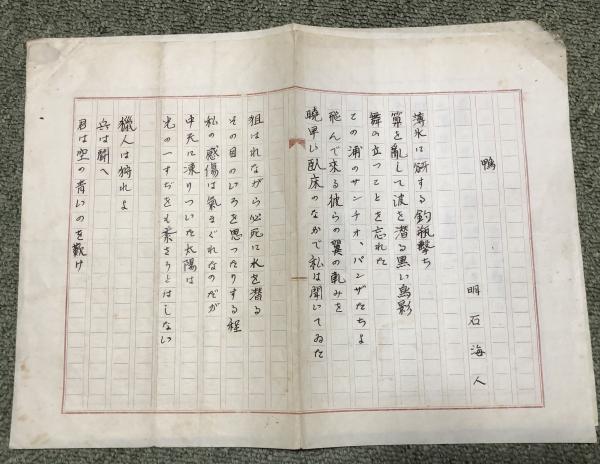 鴨
明石海人
薄氷に谺する釣瓶撃ち
算を亂して波を潜る黒い鳥影
舞ひ立つことを忘れた
この浦のサンチオ、パンザたちよ
飛んで來る彼らの翼の軋みを
曉早い臥床のなかで私は聞いてゐた
狙はれながら必死に水を潜る
その目のいろを思つたりする程
私の感傷は氣まぐれなのだが
中天に凍りついた太陽は
光の一すぢをも素さうとはしない
獵人は狩れよ
兵は鬪へ
君は空の青いのを戴け